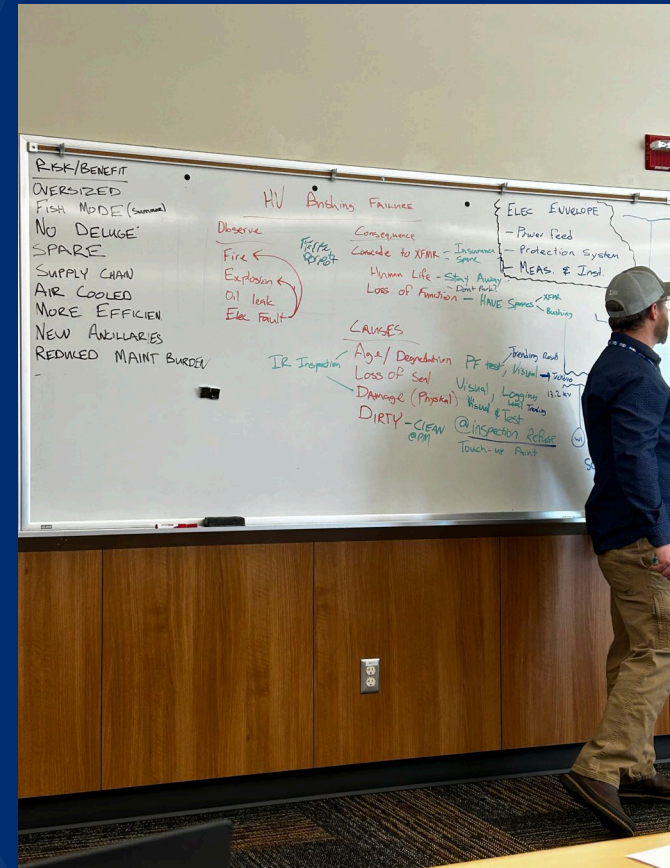 RISK/BENEFIT
OVERSIZED
FISH MODE (Summer)
NO DELUGE
SPARE
SUPPLY CHAIN
AIR COOLED
MORE EFFICIEN
NEW ANCILLARIES
REDUCED MAINT BURDEN
-
HV Bushing FAILURE
Observe
Fire
Explosion
Oil leak
Elec Fault
Consequence
Cascade to XFMR - Insurance
Spare
Human Life - Stay Away
- Dont Park!
Loss of Function - HAVE Spares
XFMR
Bushing
CAUSES
IR Inspection
Age / Degradation
PF test, Visual
Trending Results
Loss of Seal
Visual, Logging
Damage (Physical)
Visual & Test
DIRTY - CLEAN
@PM
@inspection Refuse
Touch-up Paint
ELEC ENVELOPE
- Power Feed
- Protection System
- MEAS. & Inst.
13.2 kV